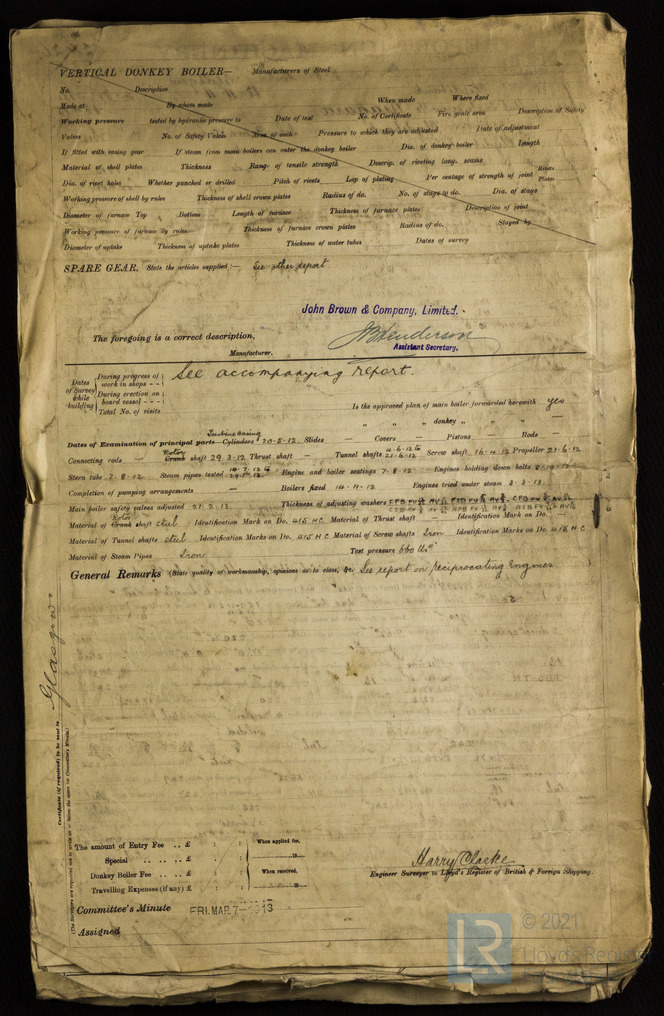 VERTICAL DONKEY BOILER— Manufacturers of Steel
No. Description
Made at By whom made When made Where fixed
Working pressure tested by hydraulic pressure to Date of test No. of Certificate Fire grate area Description of Safety
Valves No. of Safety Valves Area of each Pressure to which they are adjusted Date of adjustment
If fitted with easing gear If steam from main boilers can enter the donkey boiler Dia. of donkey boiler Length
Material of shell plates Thickness Range of tensile strength Descrip. of riveting long. seams
Dia. of rivet holes Whether punched or drilled Pitch of rivets Lap of plating Per centage of strength of joint Rivets Plates
Working pressure of shell by rules Thickness of shell crown plates Radius of do. No. of stays to do. Dia. of stays
Diameter of furnace Top Bottom Length of furnace Thickness of furnace plates Description of joint
Working pressure of furnace by rules Thickness of furnace crown plates Radius of do. Stayed by
Diameter of uptake Thickness of uptake plates Thickness of water tubes Dates of survey
SPARE GEAR. State the articles supplied:— See other report
John Brown & Company, Limited.
The foregoing is a correct description, Henderson
Manufacturer. Assistant Secretary.
Dates of Survey while building
During progress of work in shops - - See accompanying report.
During erection on board vessel - - -
Total No. of visits
Is the approved plan of main boiler forwarded herewith yes
" " " donkey " "
Turbine casing
Dates of Examination of principal parts—Cylinders 20-5-12 Slides — Covers — Pistons — Rods —
Connecting rods — Rotor Crank shaft 29.3.12 Thrust shaft — Tunnel shafts 4-6-12 & 21-6-12 Screw shaft 16-4-12 Propeller 21-6-12
Stern tube 7-8-12 Steam pipes tested Engine and boiler seatings 7-8-12 Engines holding down bolts 8-10-12
Completion of pumping arrangements — Boilers fixed 14-11-12 Engines tried under steam 3-3-13
Main boiler safety valves adjusted 21-2-13 Thickness of adjusting washers
Material of Rotor Crank shaft steel Identification Mark on Do. 415 HC Material of Thrust shaft — Identification Mark on Do.
Material of Tunnel shafts steel Identification Marks on Do. 415 H C Material of Screw shafts Iron Identification Marks on Do. 415 H C
Material of Steam Pipes Iron Test pressure 660 lbs
General Remarks (State quality of workmanship, opinions as to class, &c. See report on reciprocating Engines
Glasgow
Certificate (if required) to be sent to
The amount of Entry Fee . . £ : : When applied for,
Special . . . . . £ : : 19
Donkey Boiler Fee . . . £ : : When received,
Travelling Expenses (if any) £ : : 19
Harry Clarke
Engineer Surveyor to Lloyd's Register of British & Foreign Shipping.
Committee's Minute FRI. MAR. 7-1913
Assigned
LR © 2021